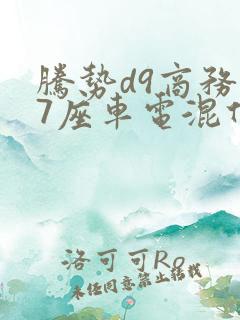 騰勢d9商務
7座車電混
洛可可Ro
未經同意禁止轉載